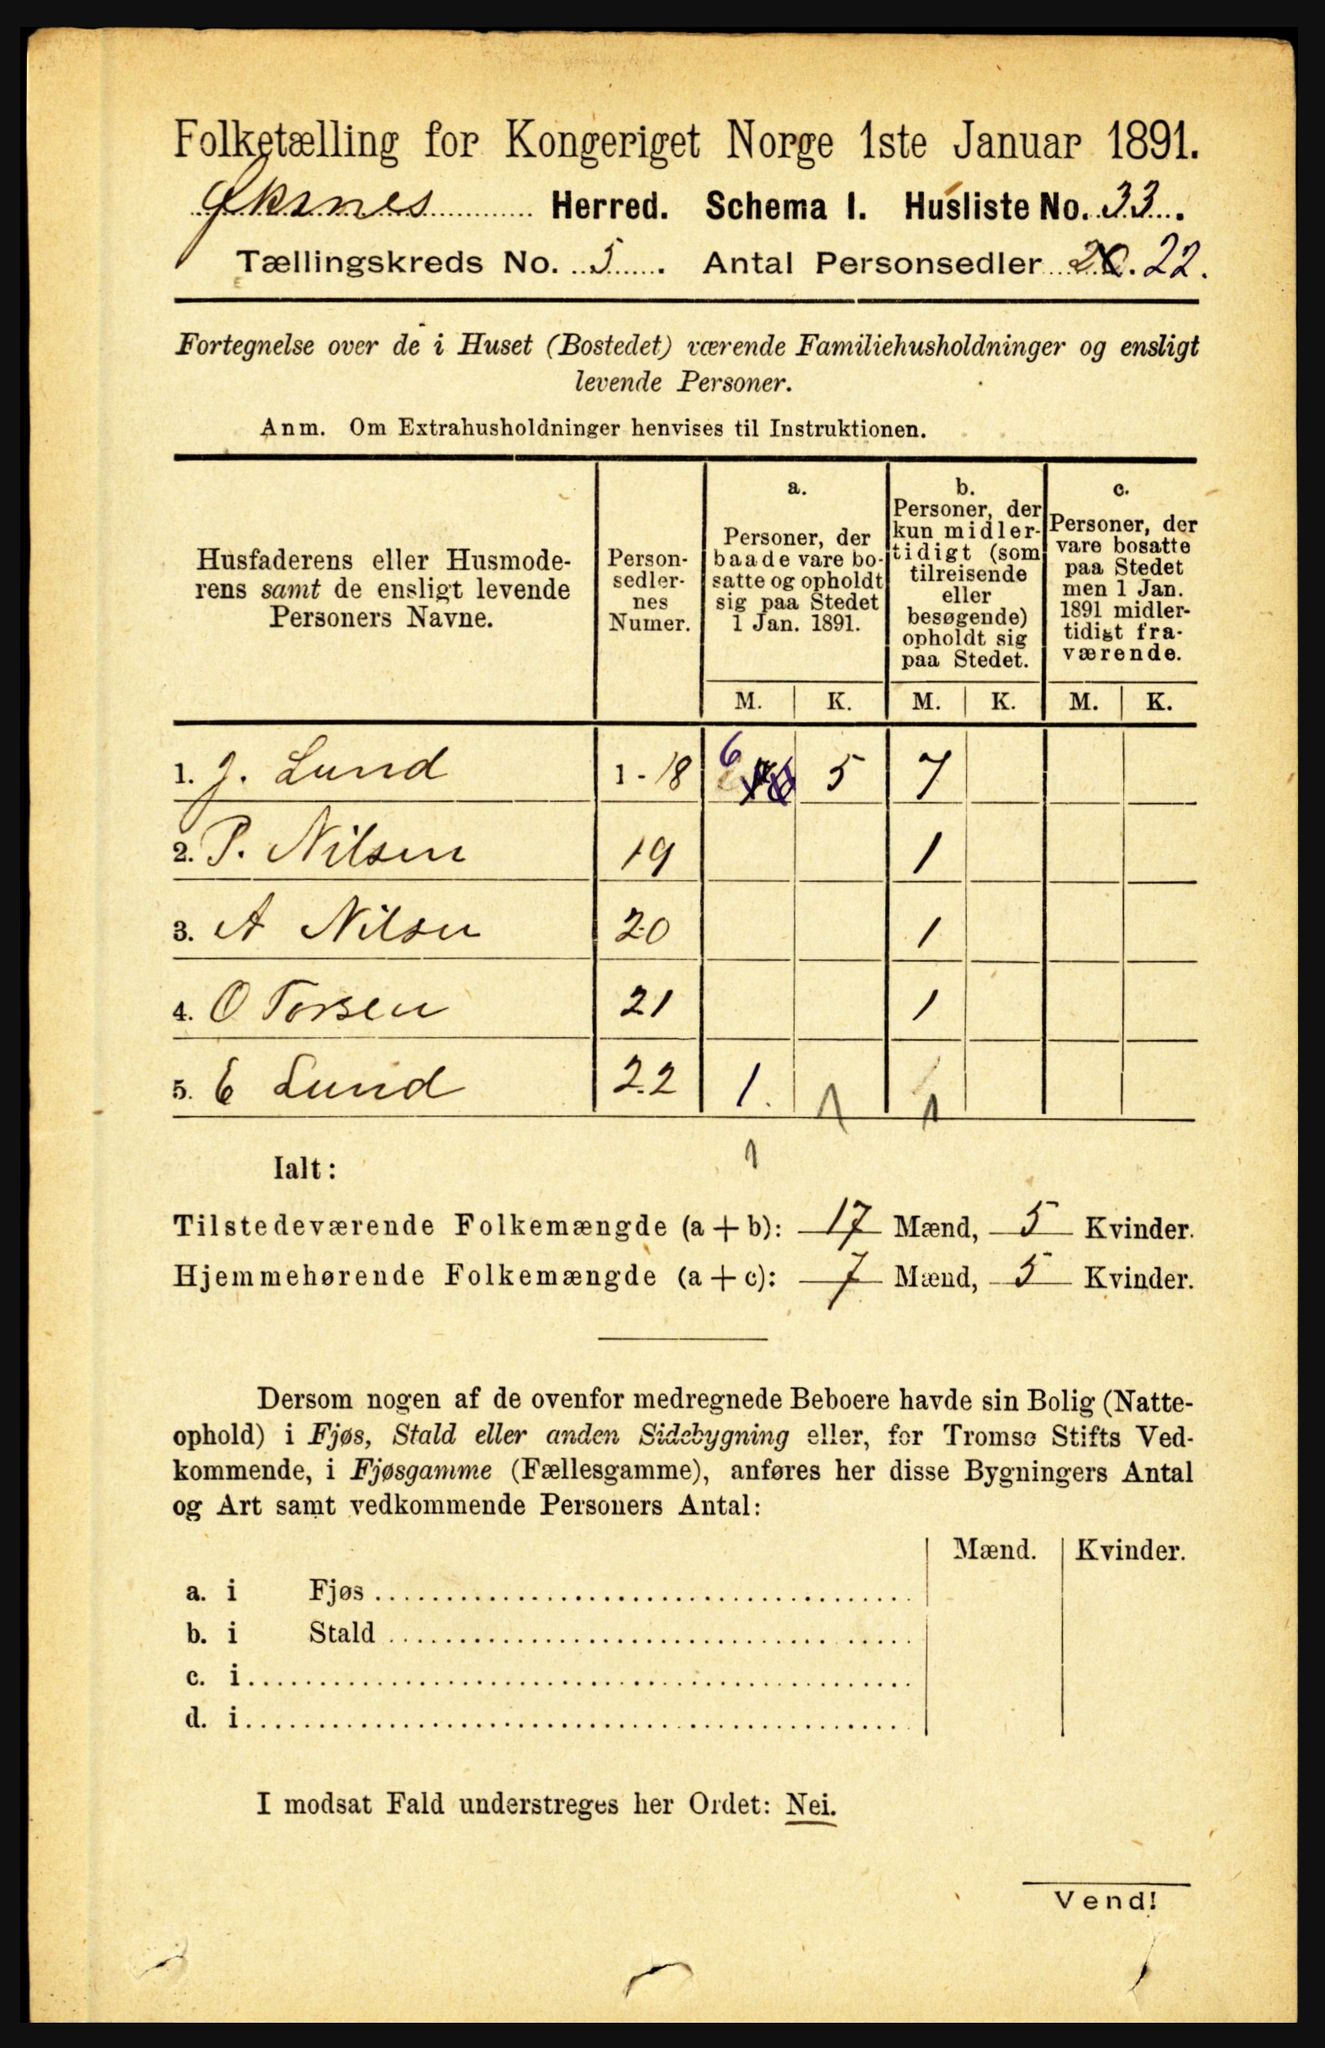 Folketælling for Kongeriget Norge 1ste Januar 1891.
Øksnes Herred. Schema I. Husliste No. 33.
Tællingskreds No. 5. Antal Personsedler 20. 22.
Fortegnelse over de i Huset (Bostedet) værende Familiehusholdninger og ensligt
levende Personer.
Anm. Om Extrahusholdninger henvises til Instruktionen.
Husfaderens eller Husmode-
rens samt de ensligt levende
Personers Navne.
Person-
sedler-
nes
Numer.
a.
Personer, der
baade vare bo-
satte og opholdt
sig paa Stedet
1 Jan. 1891.
b.
Personer, der
kun midler-
tidigt (som
tilreisende
eller
besøgende)
opholdt sig
paa Stedet.
c.
Personer, der
vare bosatte
paa Stedet
men 1 Jan.
1891 midler-
tidigt fra-
værende.
M. K. M. K. M. K.
1. J. Lund 1-18 6 5 7
2. P. Nilsen 19 1
3. A Nilsen 20 1
4. O Torsen 21 1
5. E Lund 22 1. 1 1
1
Ialt:
Tilstedeværende Folkemængde (a + b): 17 Mænd, 5 Kvinder.
Hjemmehørende Folkemængde (a + c): 7 Mænd, 5 Kvinder.
Dersom nogen af de ovenfor medregnede Beboere havde sin Bolig (Natte-
ophold) i Fjøs, Stald eller anden Sidebygning eller, for Tromsø Stifts Ved-
kommende, i Fjøsgamme (Fællesgamme), anføres her disse Bygningers Antal
og Art samt vedkommende Personers Antal:
Mænd. Kvinder.
a. i Fjøs
b. i Stald
c. i
d. i
I modsat Fald understreges her Ordet: Nei.
Vend!